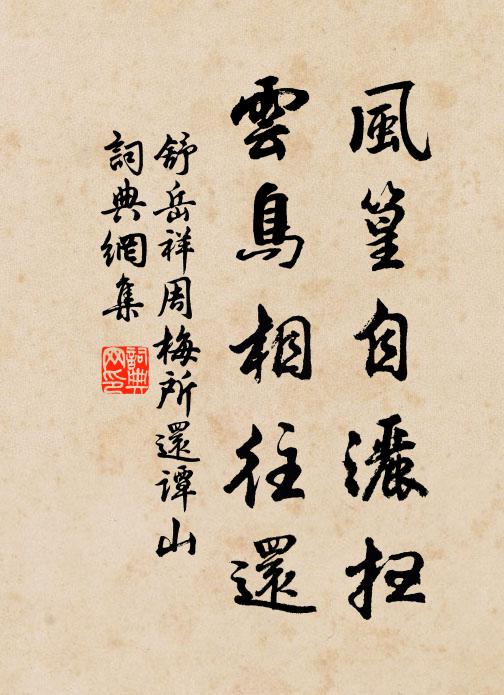 風篁自灑扫
雲鳥相往還
舒岳祥周梅所還譚山
詞典網集
詞典网印